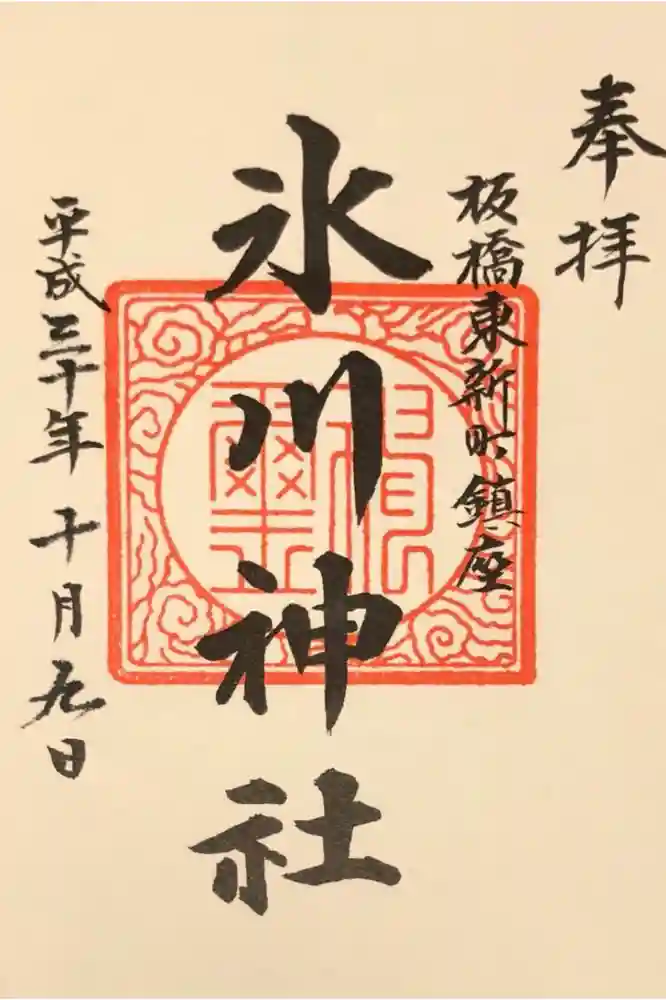 奉拝
板橋東新町鎮座
氷川神社
平成三十年十月九日